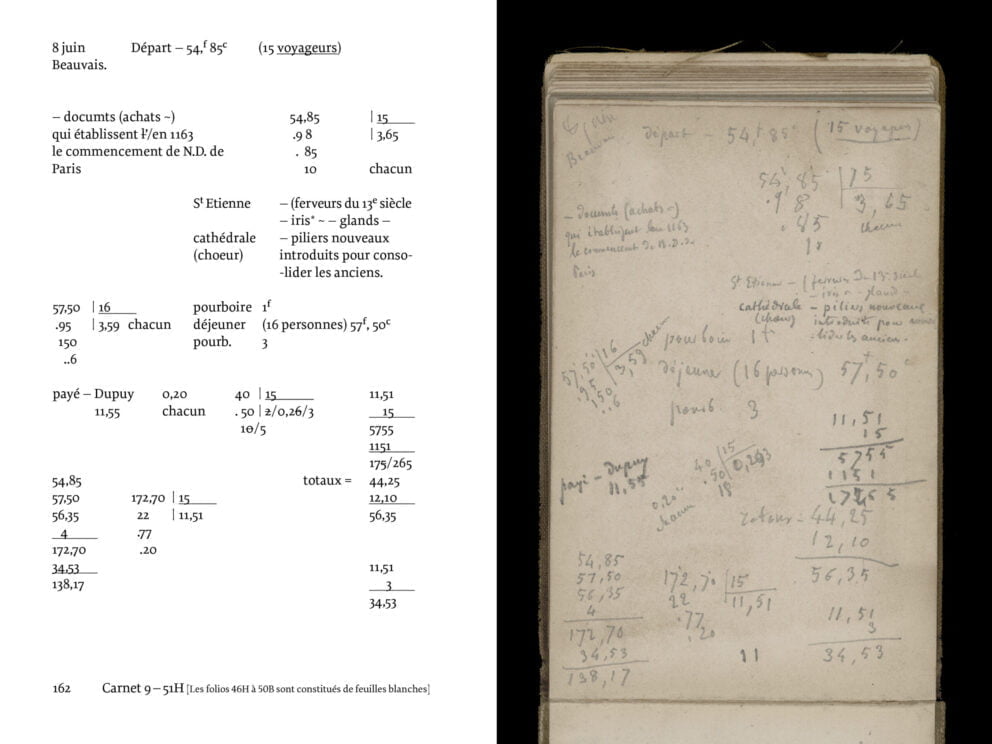 8 juin Départ – 54,f 85c (15 voyageurs)
Beauvais.
– documts (achats ~) 54,85 | 15
qui établissent l'/en 1163 .9 8 | 3,65
le commencement de N.D. de . 85
Paris 10 chacun
St Etienne – (ferveurs du 13e siècle
– iris* ~ – glands –
cathédrale – piliers nouveaux
(choeur) introduits pour conso-
-lider les anciens.
57,50 | 16 pourboire 1f
.95 | 3,59 chacun déjeuner (16 personnes) 57f, 50c
150 pourb. 3
..6
payé – Dupuy 0,20 40 | 15 11,51
11,55 chacun . 50 | 2/0,26/3 15
10/5 5755
1151
175/265
54,85 totaux = 44,25
57,50 172,70 | 15 12,10
56,35 22 | 11,51 56,35
4 .77
172,70 .20
34,53 11,51
138,17 3
34,53
162 Carnet 9 – 51H [Les folios 46H à 50B sont constitués de feuilles blanches]
départ – 54,f 85c (15 voyages)
Beauvais
54,85 | 15
.9 8 | 3,65
– documts (achats ~) . 85 chacun
qui établissent l'en 1163 10
le commencement de N.D. de
Paris
St Etienne – (ferveurs du 13e siècle
– iris ~ – glands –
cathédrale – piliers nouveaux
(choeur) introduits pour conso-
-lider les anciens.
57,50 | 16 pourboire 1f
.95 | 3,59 chacun déjeuné (16 personn) 57,f 50c
150
..6 pourb 3
11,51
15
payé – Dupuy 40 | 15 5755
11,55 .50 | 0,263 1151
0,20 18 17265
chacun
totaux = 44,25
12,10
54,85 56,35
57,50 172,70 | 15
56,35 22 | 11,51
4 .77 11,51
172,70 .20 3
34,53 11 34,53
138,17